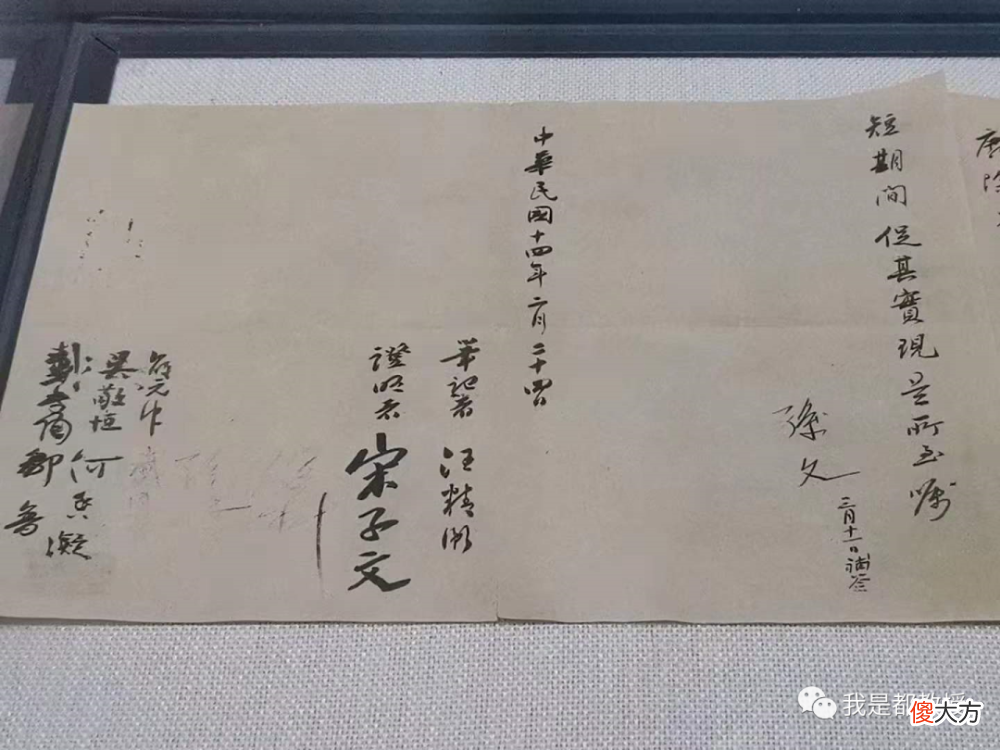 廢除
短期間促其實現是所至囑
孫文
三月十一日補簽
中華民國十四年二月二十四日
筆記者 汪精衛
證明者 宋子文
邵元冲
吳敬恒 何香凝
戴季陶 鄒魯
我是都教授
傻大方